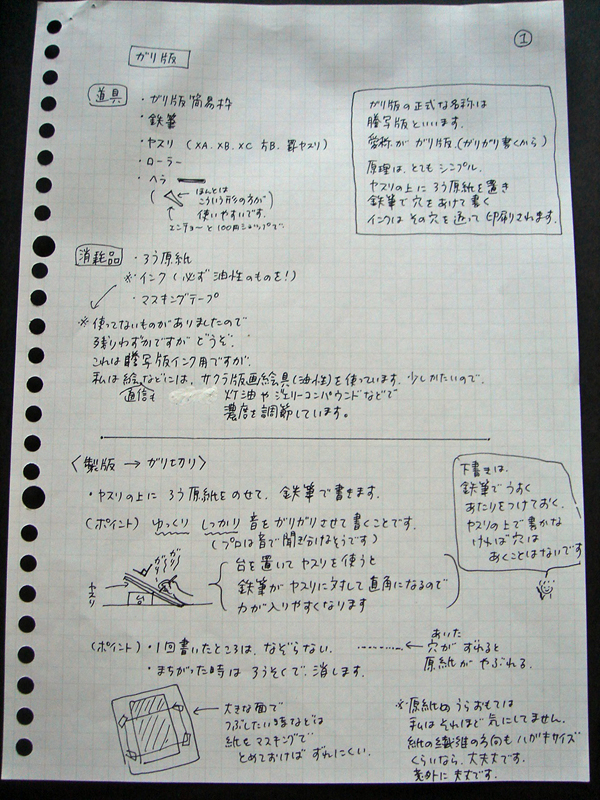 ①
ガリ版
道具
・ガリ版簡易枠
・鉄筆
・ヤスリ(×A、×B、×C 方B、罫ヤスリ)
・ローラー
・ヘラ
(←ほんとは
こういう形の方が
使いやすいです。
エンチョーと100円ショップで)
ガリ版の正式な名称は
謄写版といいます。
愛称がガリ版。(ガリガリ書くから)
原理は、とてもシンプル。
ヤスリの上にろう原紙を置き
鉄筆で穴をあけて書く
インクはその穴を通って印刷されます。
消耗品
・ろう原紙
※インク(必ず油性のものを!)
・マスキングテープ
※使ってないものがありましたので
残りわずかですがどうぞ。
これは謄写版インク用ですが、
私は絵などには、サクラ版画絵具(油性)を使っています。少しかたいので、
通信も
灯油やジェリーコンパウンドなどで
濃度を調節しています。
〈製版→ガリ切り〉
・ヤスリの上にろう原紙をのせて、鉄筆で書きます。
(ポイント) ゆっくり しっかり 音をガリガリさせて書くことです。
(プロは音で聞き分けるそうです)
下書きは、
鉄筆でうすく
あたりをつけておく。
ヤスリの上で書かな
ければ穴は
あくことはないです
ガリガリ
ヤスリ
台
台を置いてヤスリを使うと
鉄筆がヤスリに対して直角になるので
力が入りやすくなります
(ポイント)・1回書いたところは、なぞらない。
←あいた
穴がずれると
原紙がやぶれる。
・まちがった時はろうそくで、消します。
←大きな面で
つぶしたい時などは
紙をマスキングで
とめておけばずれにくい。
※原紙のうらおもては
私はそれほど気にしてません。
紙の繊維の方向もハガキサイズ
くらいなら、大丈夫です。
意外に丈夫です。